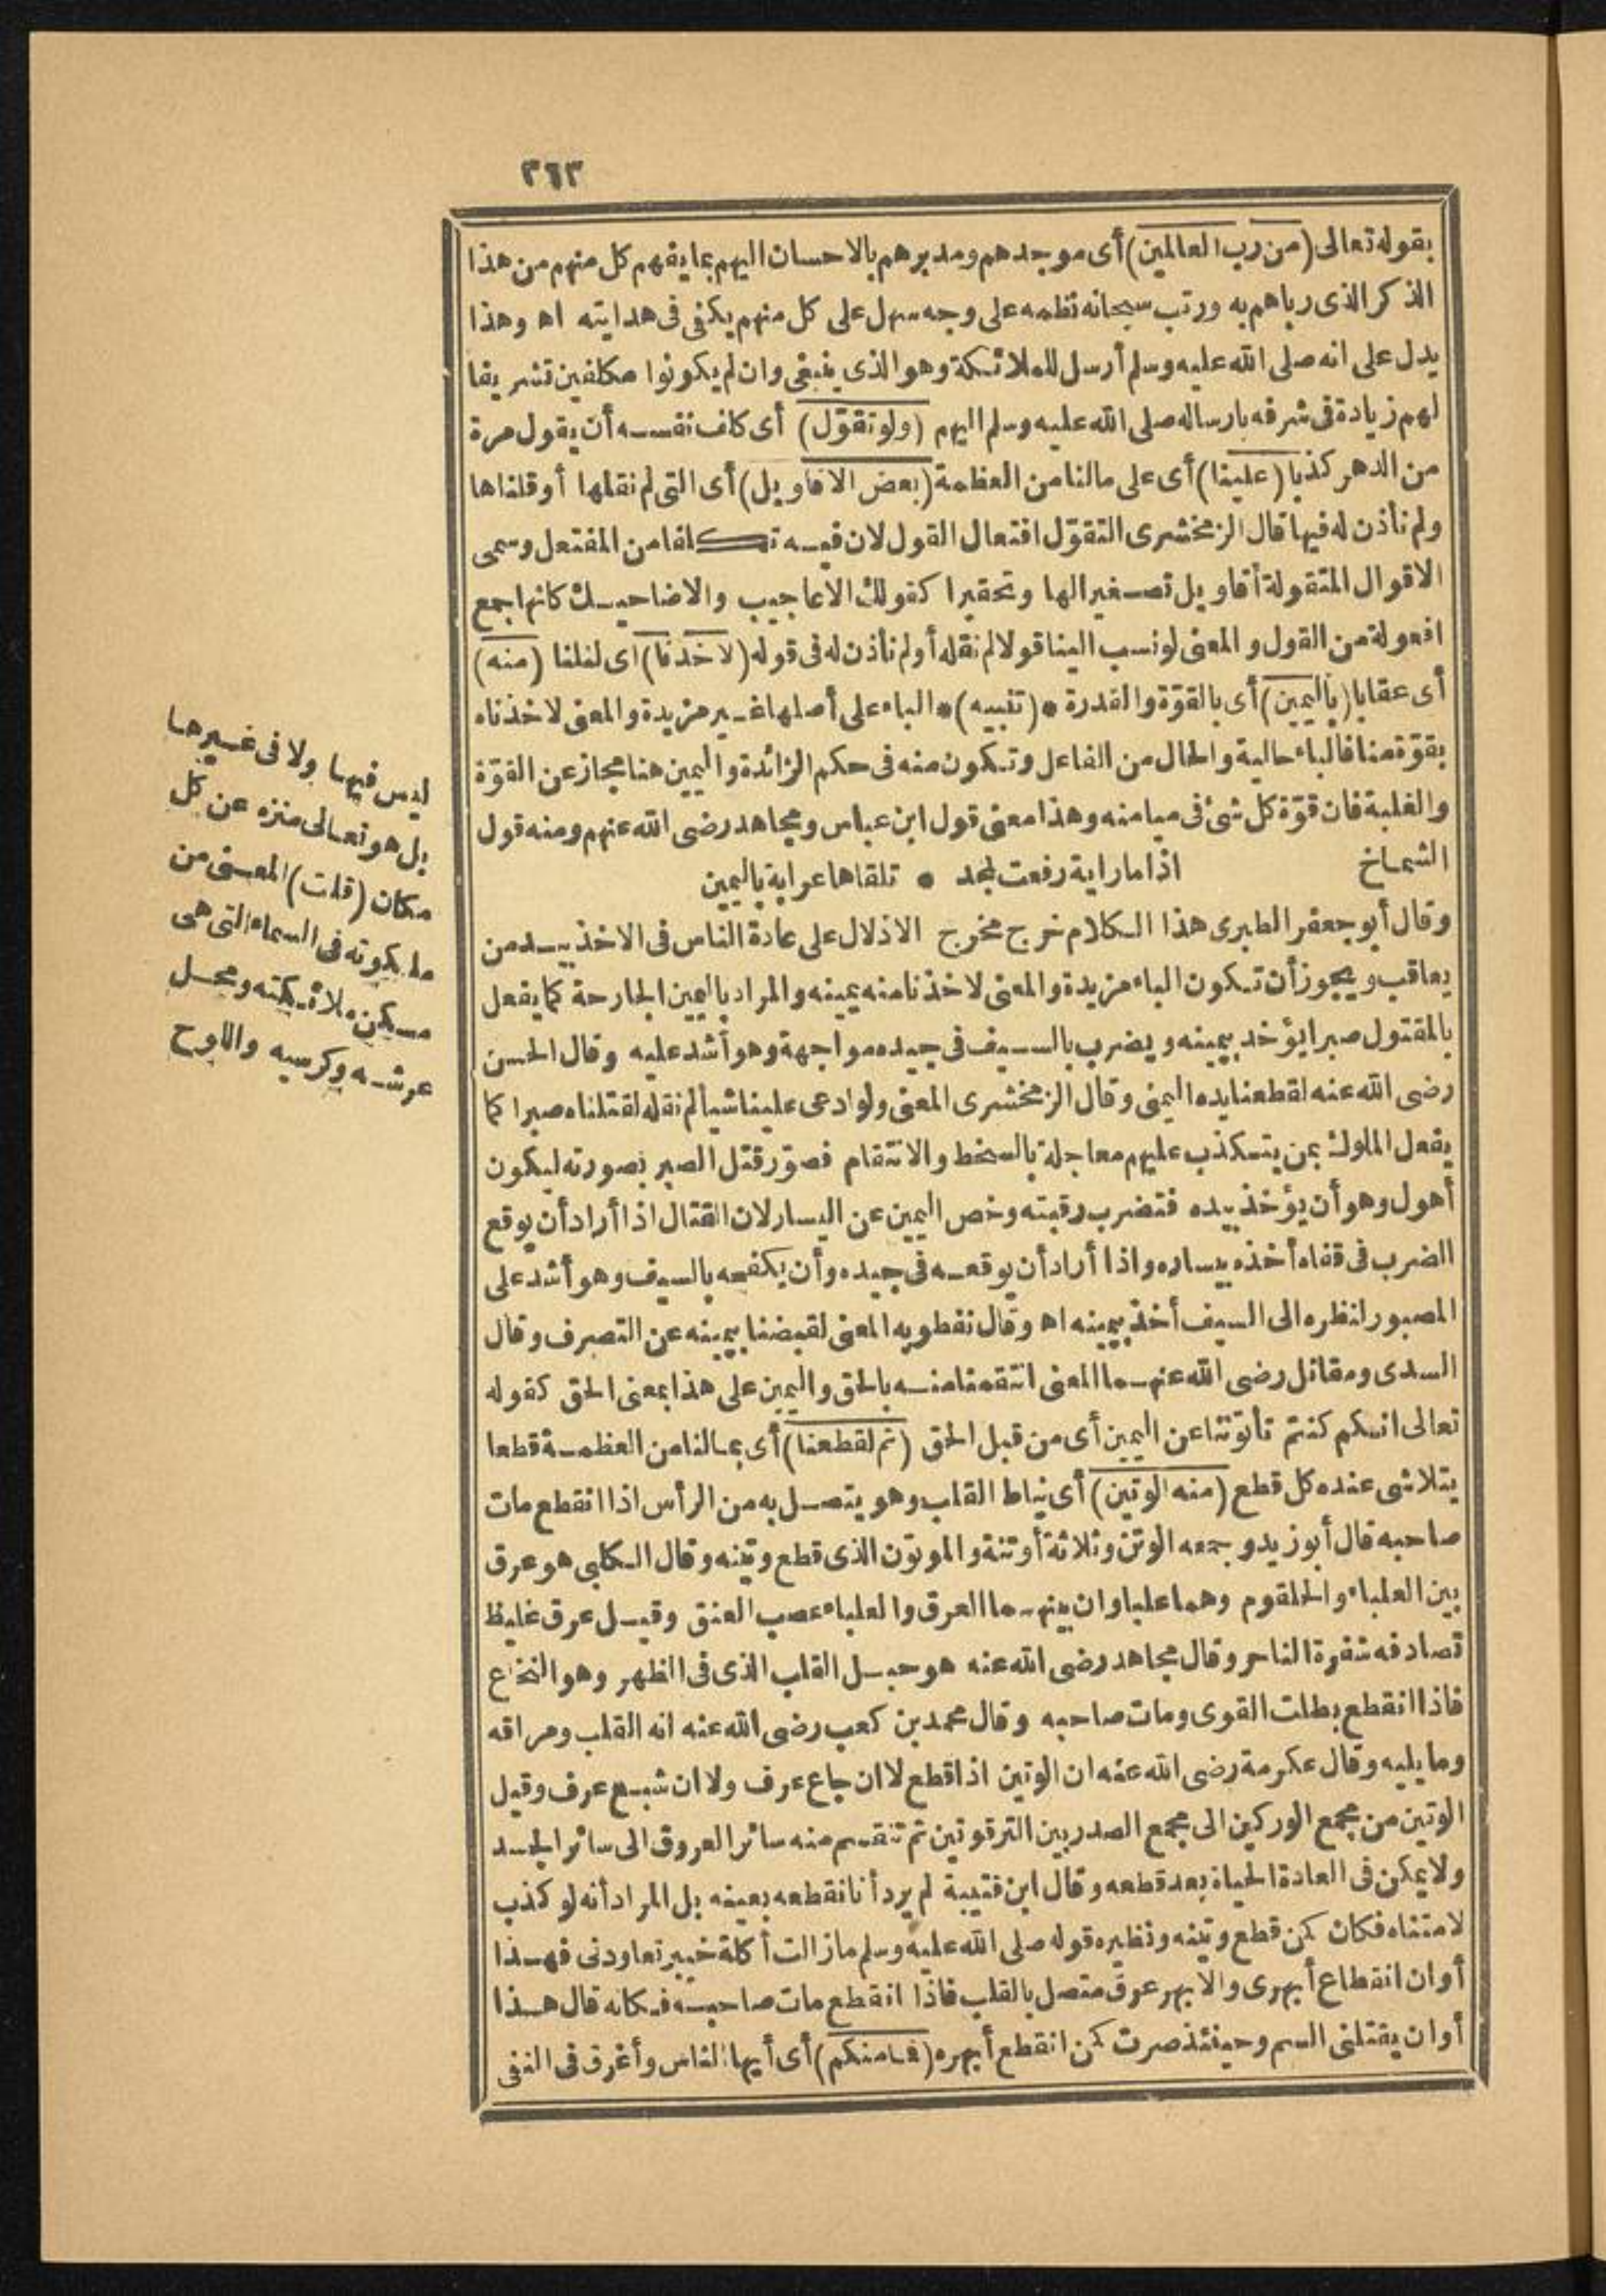 ٣٦٣
بقوله تعالى (من رب العالمين) أى موجدهم ومدبرهم بالاحسان اليهم بما يفهم كل منهم من هذا
الذكر الذى رباهم به ورتب سبحانه نظمه على وجه سهل على كل منهم يكفى فى هدايته اه وهذا
يدل على انه صلى الله عليه وسلم أرسل للملائكة وهو الذى ينبغى وان لم يكونوا مكلفين تشريفا
لهم زيادة فى شرفه بارساله صلى الله عليه وسلم اليهم (ولو تقوّل) أى كلف نفسه أن يقول مرة
من الدهر كذبا (علينا) أى على مالنا من العظمة (بعض الاقاويل) أى التى لم نقلها أو قلناها
ولم نأذن له فيها قال الزمخشرى التقوّل افتعال القول لان فيه تكلفا من المفتعل وسمى
الاقوال المتقولة أقاويل تصغيرا لها وتحقيرا كقولك الاعاجيب والاضاحيك كانها جمع
افعولة من القول والمعنى لو نسب الينا قولا لم نقله أو لم نأذن له فى قوله (لاخذنا) أى لنلنا (منه)
أى عقابا (باليمين) أى بالقوّة والقدرة * (تنبيه) * الباء على أصلها غير مزيدة والمعنى لاخذناه
بقوّة منا فالباء حالية والحال من الفاعل وتكون منه فى حكم الزائدة واليمين هنا مجاز عن القوّة
والغلبة فان قوّة كل شئ فى ميامنه وهذا معنى قول ابن عباس ومجاهد رضى الله عنهم ومنه قول
الشماخ اذا ما راية رفعت لمجد * تلقاها عرابة باليمين
وقال أبو جعفر الطبرى هذا الكلام خرج مخرج الاذلال على عادة الناس فى الاخذ بيد من
يعاقب ويجوز أن تكون الباء مزيدة والمعنى لاخذنا منه يمينه والمراد باليمين الجارحة كما يفعل
بالمقتول صبرا يؤخد بيمينه ويضرب بالسيف فى جيده مواجهة وهو أشد عليه وقال الحسن
رضى الله عنه لقطعنا يده اليمنى وقال الزمخشرى المعنى ولو ادعى علينا شيأ لم نقله لقتلناه صبرا كما
يفعل الملوك بمن يتكذب عليهم معاجلة بالسخط والانتقام فصوّر قتل الصبر بصورته ليكون
أهول وهو أن يؤخذ بيده فتضرب رقبته وخص اليمين عن اليسار لان القتال اذا أراد أن يوقع
الضرب فى قفاه أخذه بيساره واذا أراد أن يوقعه فى جيده وأن يكفحه بالسيف وهو أشد على
المصبور لنظره الى السيف أخذ بيمينه اه وقال نفطويه المعنى لقبضنا بيمينه عن التصرف وقال
السدى ومقاتل رضى الله عنهما المعنى انتقمنا منه بالحق واليمين على هذا بمعنى الحق كقوله
تعالى انكم كنتم تأتوننا عن اليمين أى من قبل الحق (ثم لقطعنا) أى بمالنا من العظمة قطعا
يتلاشى عنده كل قطع (منه الوتين) أى نياط القلب وهو يتصل به من الرأس اذا انقطع مات
صاحبه قال أبو زيد وجمعه الوتن وثلاثة أوتنة والموتون الذى قطع وتينه وقال الكلبى هو عرق
بين العلباء والحلقوم وهما علباوان بينهما العرق والعلباء عصب العنق وقيل عرق غليظ
تصادفه شفرة الناحر وقال مجاهد رضى الله عنه هو حبل القلب الذى فى الظهر وهو النخاع
فاذا انقطع بطلت القوى ومات صاحبه وقال محمد بن كعب رضى الله عنه انه القلب ومراقه
وما يليه وقال عكرمة رضى الله عنه ان الوتين اذا قطع لا ان جاع عرف ولا ان شبع عرف وقيل
الوتين من مجمع الوركين الى مجمع الصدر بين الترقوتين ثم تنقسم منه سائر العروق الى سائر الجسد
ولا يمكن فى العادة الحياة بعد قطعه وقال ابن قتيبة لم يرد أنا نقطعه بعينه بل المراد أنه لو كذب
لامتناه فكان كمن قطع وتينه ونظيره قوله صلى الله عليه وسلم ما زالت أكلة خيبر تعاودنى فهذا
أوان انقطاع أبهرى والابهر عرق متصل بالقلب فاذا انقطع مات صاحبه فكانه قال هذا
أوان يقتلنى السم وحينئذ صرت كمن انقطع أبهره (فما منكم) أى أيها الناس وأغرق فى النفى
ليس فيها ولا فى غيرها
بل هو تعالى منزه عن كل
مكان (قلت) المعنى من
ملكوته فى السماء التى هى
مسكن ملائكته ومحل
عرشه وكرسيه واللوح